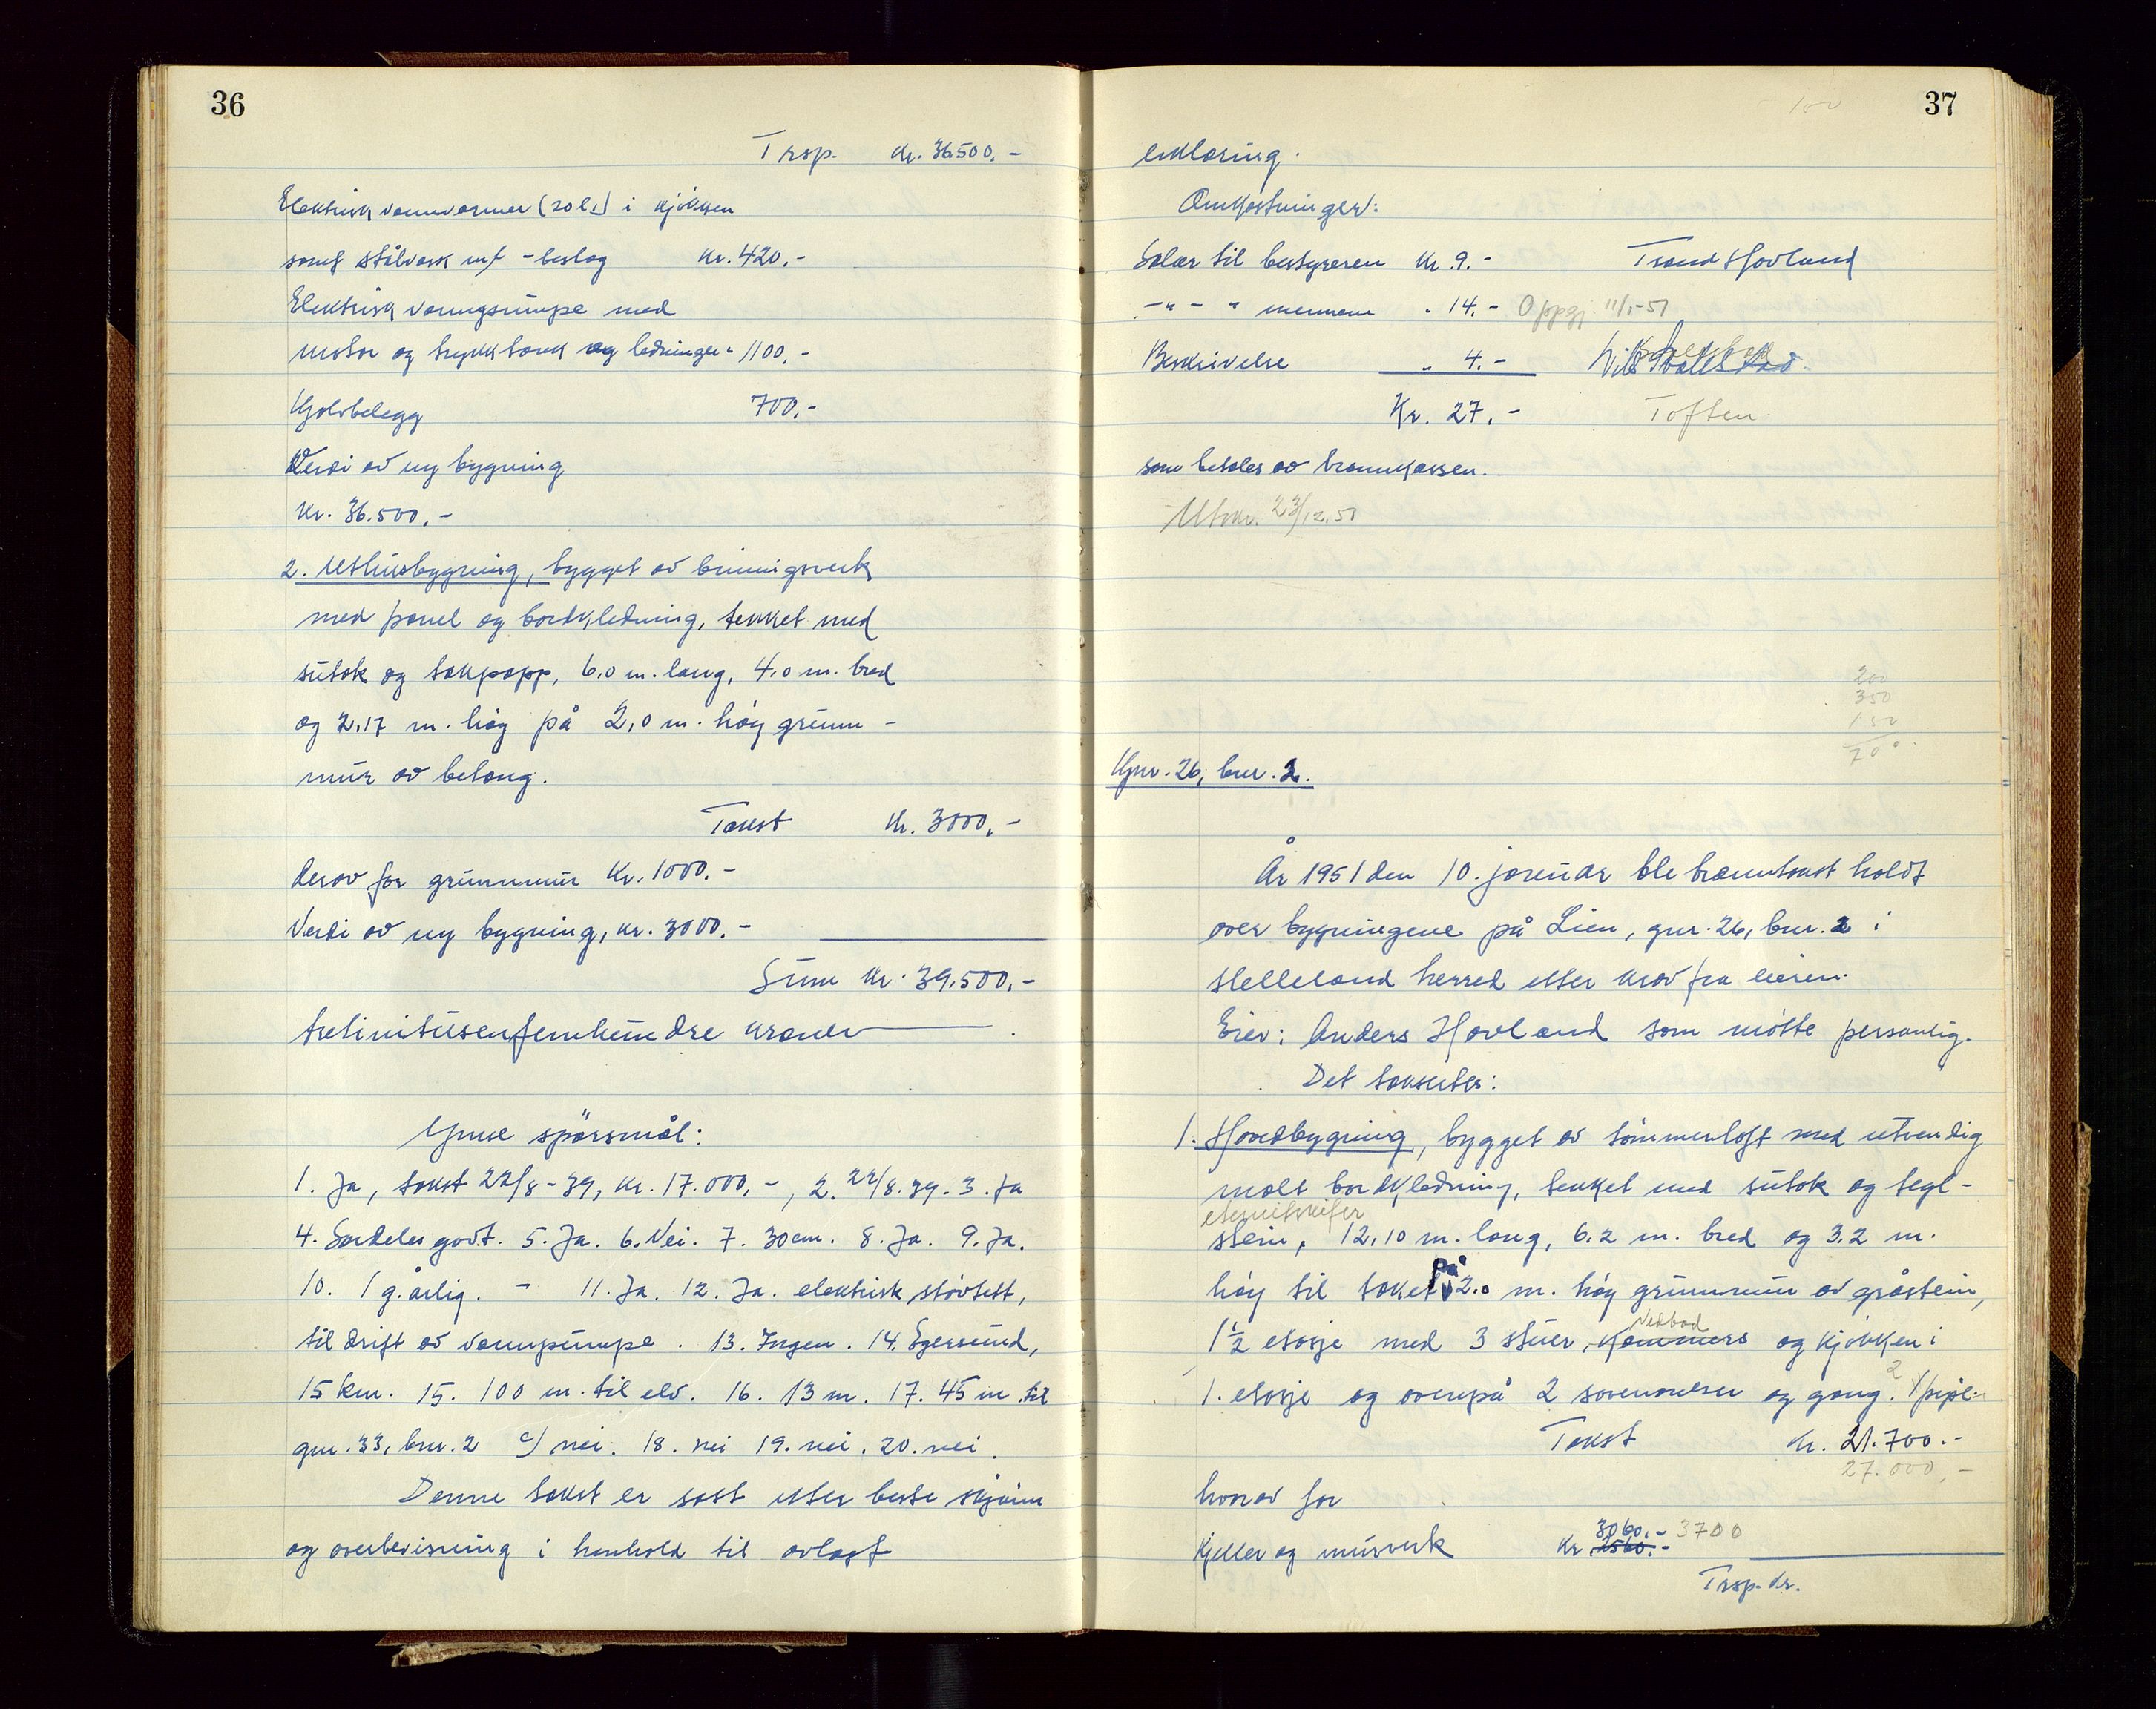 36
Trsp. Kr. 36500.-
Elektrisk vannvarmer (20 l.) i kjøkken
samt stålvask m/ -beslag Kr. 420.-
Elektrisk vannpumpe med
motor og trykktank og ledninger " 1100.-
Golvbelegg 700.-
Verdi av ny bygning
Kr. 36.500.-
2. Uthusbygning, bygget av binningsverk
med panel og bordkledning, tekket med
sutak og takpapp, 6,0 m. lang, 4,0 m. bred
og 2,17 m. høg på 2,0 m. høy grunn-
mur av betong.
Takst Kr. 3000.-
derav for grunnmur Kr. 1000.-
Verdi av ny bygning, kr. 3000.-
Sum Kr. 39.500.-
trettinitusenfemhundre kroner
Ymse spørsmål:
1. Ja, takst 22/8-39, Kr. 17.000,-, 2. 22/8.39. 3. Ja
4. Særdeles godt. 5. Ja. 6. Nei. 7. 30 cm. 8. Ja. 9. Ja.
10. 1 g. årlig. - 11. Ja. 12. Ja. elektrisk støvtett,
til drift av vannpumpe. 13. Ingen. 14. Egersund,
15 km. 15. 100 m. til elv. 16. 13 m. 17. 45 m. til
gnr. 33, bnr. 2 c) nei. 18. nei 19. nei. 20. nei.
Denne takst er satt etter beste skjønn
og overbevisning i henhold til avlagt
37
erklæring.
Omkostninger:
Salær til bestyreren Kr. 9.- Trond Hovland
-"- - " mennene " 14.- Oppgj. 11/1-51
Beskrivelse " 4.-
Kr. 27.- Toften
som betales av brannkassen.
Utskr. 23/12.51
200
350
150
700.
Gnr. 26, bnr. 2.
År 1951 den 10. januar ble branntakst holdt
over bygningene på Lien, gnr. 26, bnr. 2 i
Helleland herred etter krav fra eieren.
Eier: Anders Hovland som møtte personlig.
Det takseres:
1. Hovedbygning, bygget av tømmerloft med utvendig
malt bordkledning, tekket med sutak og tegl-
eternitskifer
stein, 12,10 m. lang, 6.2 m. bred og 3.2 m.
høy til taket på 2.0 m. høy grunnmur av gråstein,
1½ etasje med 3 stuer, kammers Vedbod og kjøkken i
1. etasje og ovenpå 2 soveværelser og gang. 2 1 pipe.
Takst Kr. 21.700.-
27.000,-
hvorav for
3060.- 3700
Kjeller og murverk Kr. 2560.-
Trsp. kr.